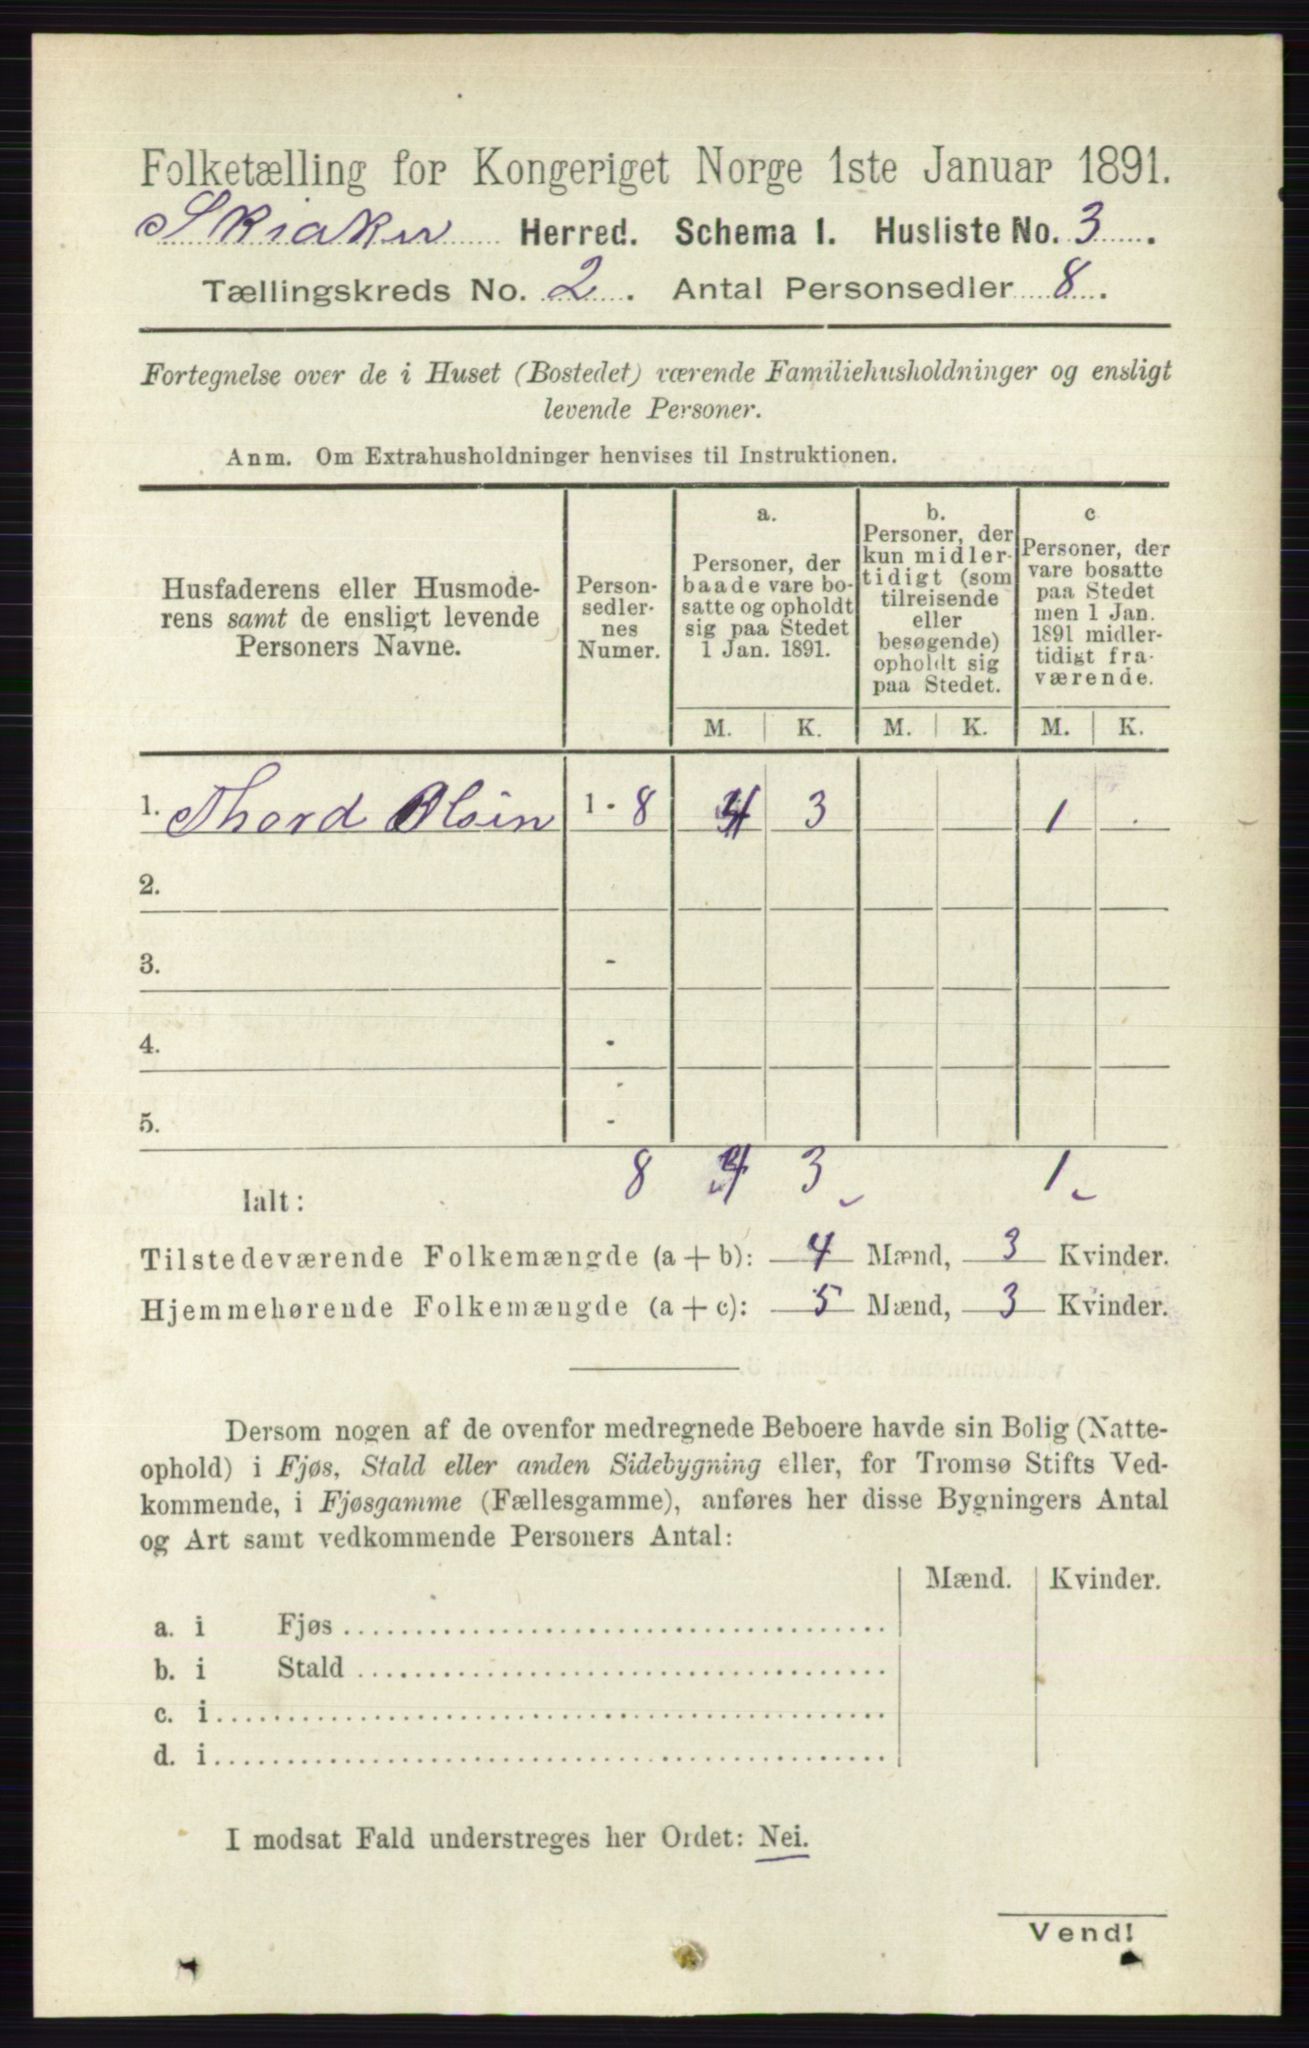 Folketælling for Kongeriget Norge 1ste Januar 1891.
Skiaker Herred. Schema 1. Husliste No. 3.
Tællingskreds No. 2. Antal Personsedler 8.
Fortegnelse over de i Huset (Bostedet) værende Familiehusholdninger og ensligt
levende Personer.
Anm. Om Extrahusholdninger henvises til Instruktionen.
Husfaderens eller Husmode-
rens samt de ensligt levende
Personers Navne.
Person-
sedler-
nes
Numer.
a.
Personer, der
baade vare bo-
satte og opholdt
sig paa Stedet
1 Jan. 1891.
b.
Personer, der
kun midler-
tidigt (som
tilreisende
eller
besøgende)
opholdt sig
paa Stedet.
c
Personer, der
vare bosatte
paa Stedet
men 1 Jan.
1891 midler-
tidigt fra-
værende.
M. K. M. K. M. K.
1. Thord Olsen 1 - 8 4 3 1
2.
3. -
4. -
5. -
8 4 3 1
Ialt:
Tilstedeværende Folkemængde (a + b): 4 Mænd, 3 Kvinder.
Hjemmehørende Folkemængde (a + c): 5 Mænd, 3 Kvinder.
Dersom nogen af de ovenfor medregnede Beboere havde sin Bolig (Natte-
ophold) i Fjøs, Stald eller anden Sidebygning eller, for Tromsø Stifts Ved-
kommende, i Fjøsgamme (Fællesgamme), anføres her disse Bygningers Antal
og Art samt vedkommende Personers Antal:
Mænd. Kvinder.
a. i Fjøs
b. i Stald
c. i
d. i
I modsat Fald understreges her Ordet: Nei.
Vend!